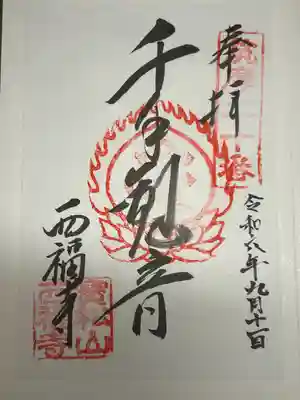 奉拝
令和六年九月十一日
千手観音
西福寺